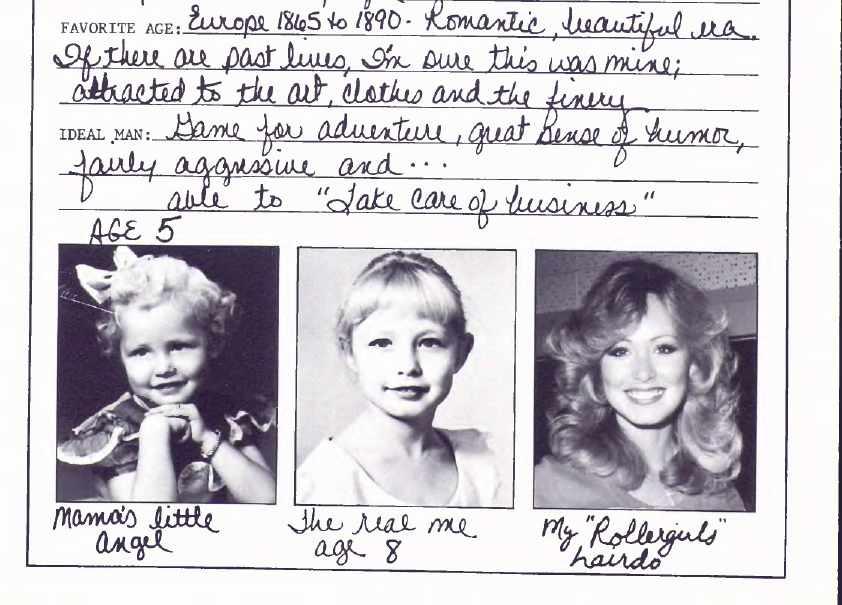 FAVORITE AGE: Europe 1865 to 1890. Romantic, beautiful era.
If there are past lives, I'm sure this was mine;
attracted to the art, clothes and the finery
IDEAL MAN: Game for adventure, great sense of humor,
fairly aggressive and ...
able to "Take care of business"
AGE 5
Mama's little
angel
The real me
age 8
My "Rollergirls"
hairdo